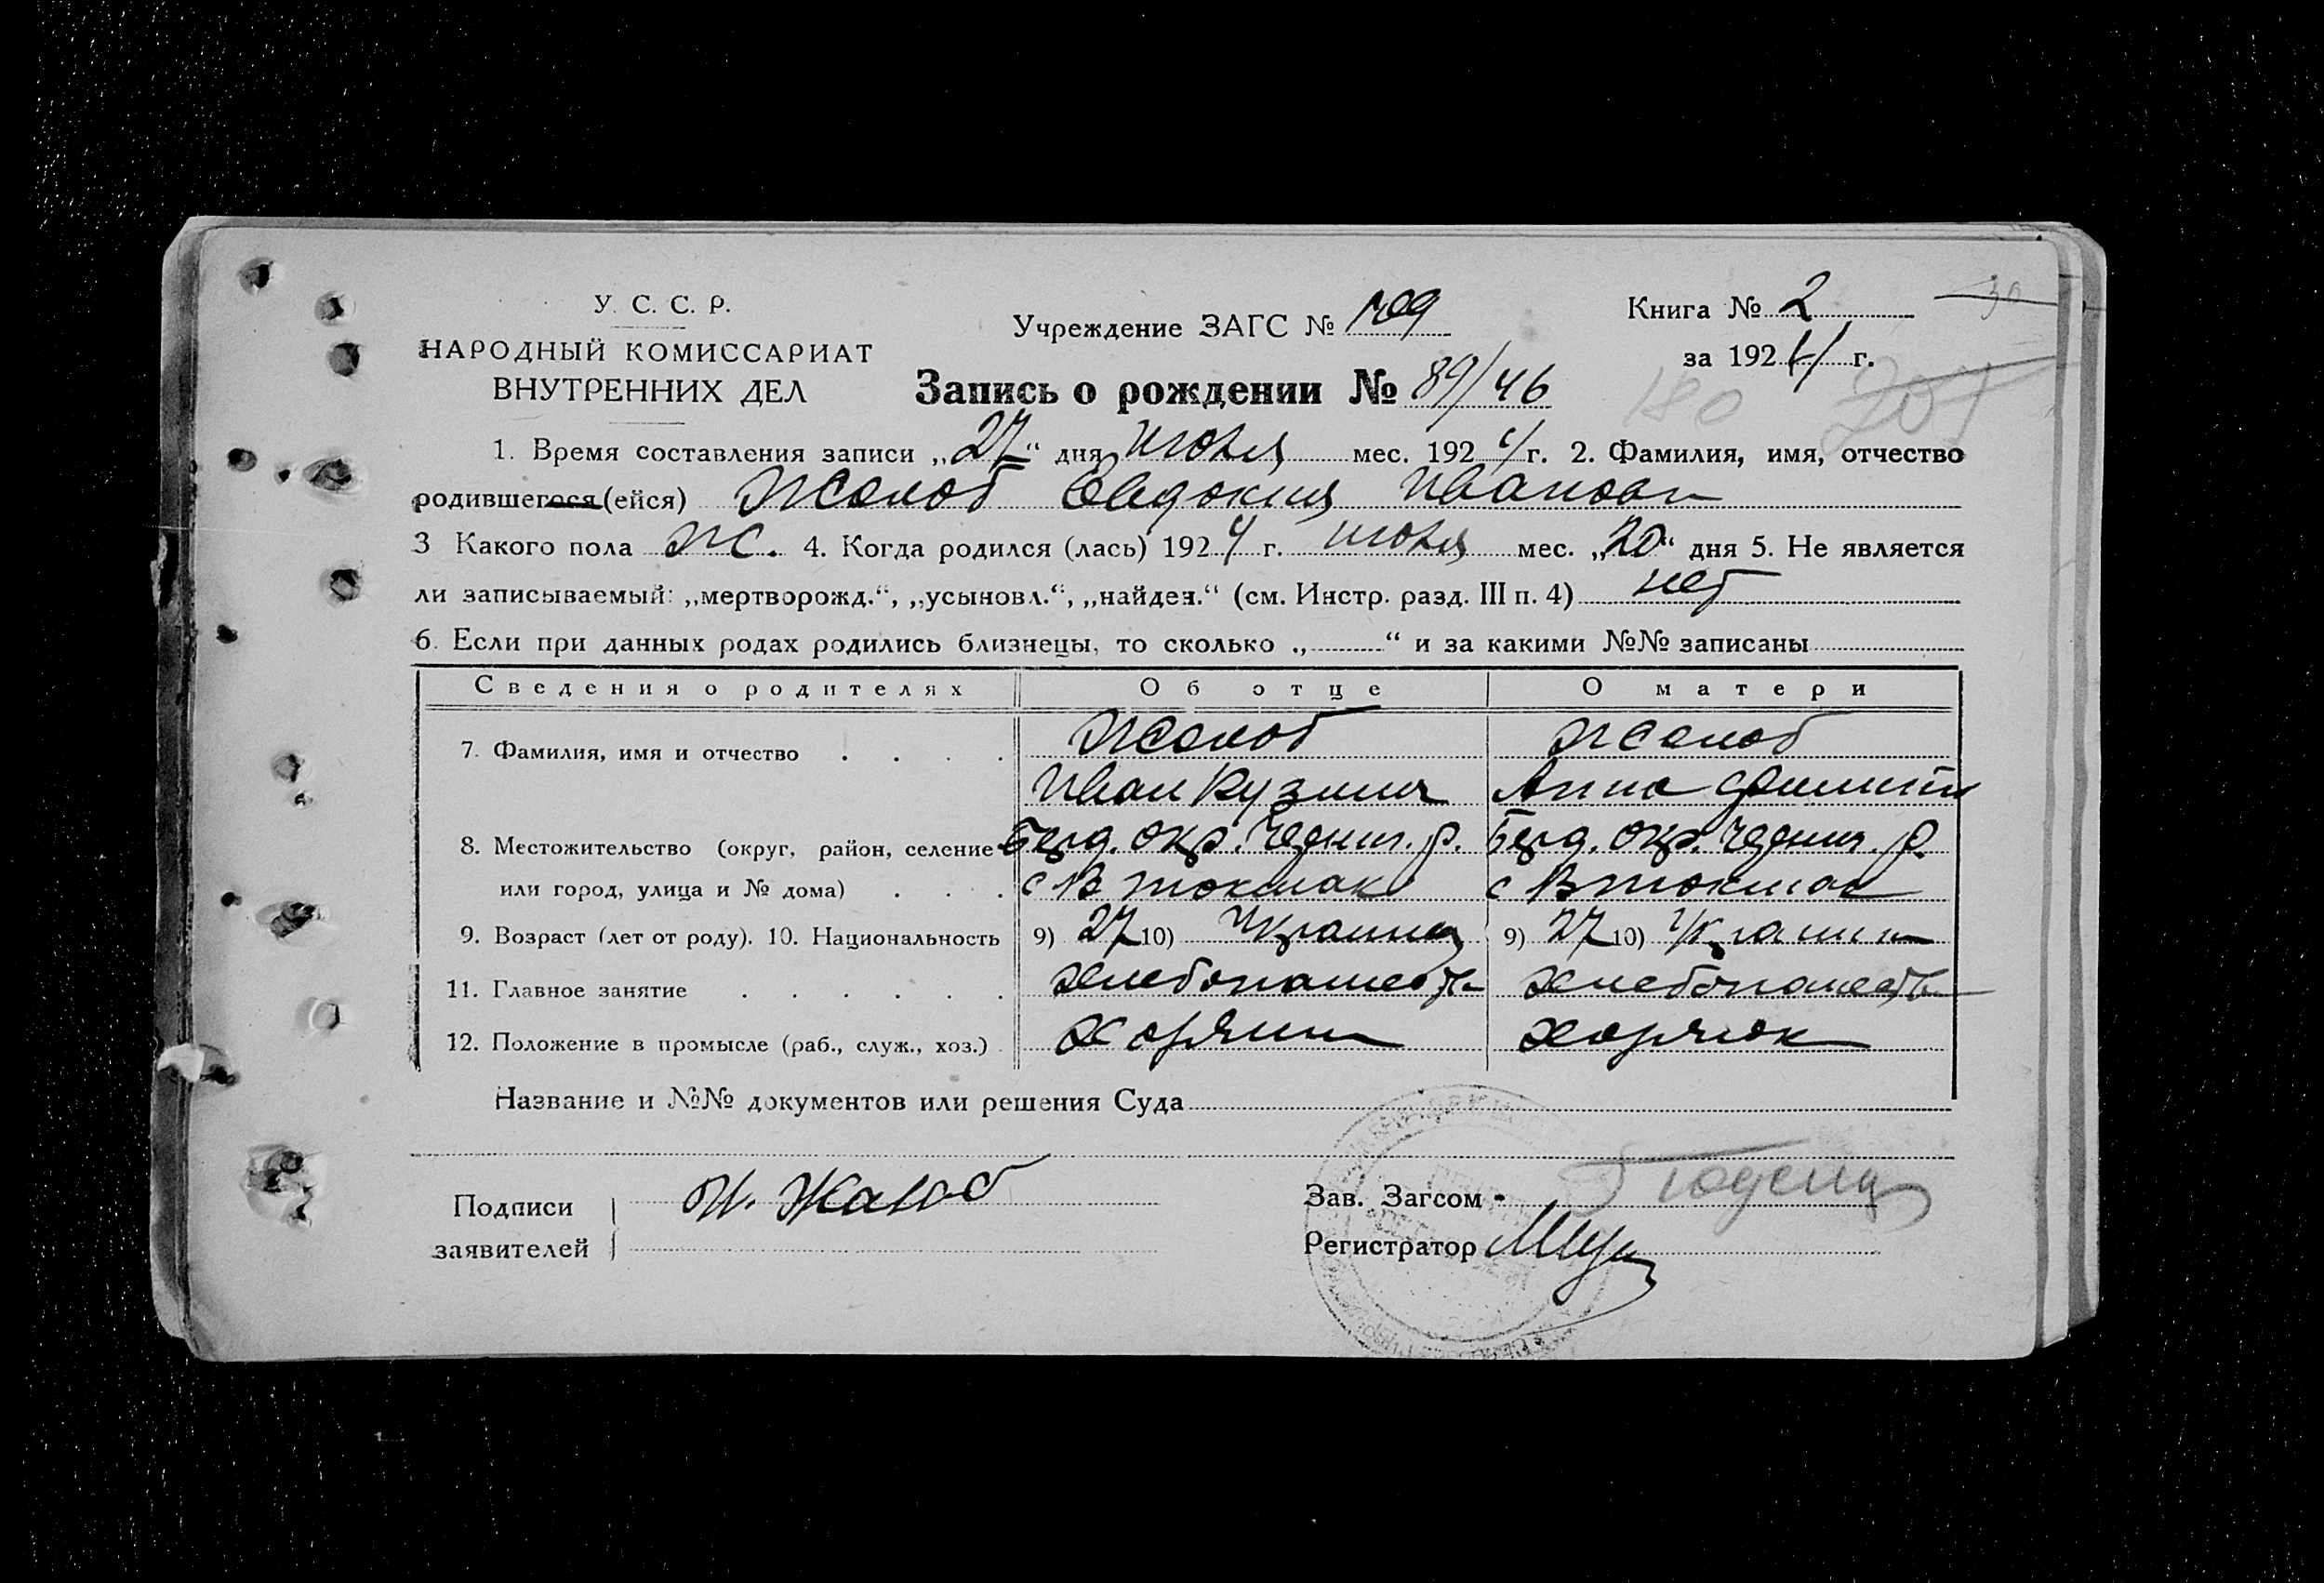 У. С. С. Р.
НАРОДНЫЙ КОМИССАРИАТ
ВНУТРЕННИХ ДЕЛ
Учреждение ЗАГС № 1709
Книга № 2
за 1924 г.
Запись о рождении № 89/46
180
1. Время составления записи „27“ дня июля мес. 1924 г. 2. Фамилия, имя, отчество
родившегося (ейся) Жолоб Евдокия Ивановн
3 Какого пола ж. 4. Когда родился (лась) 1924 г. июля мес. „20“ дня 5. Не является
ли записываемый: „мертворожд.“, „усыновл.“, „найден.“ (см. Инстр. разд. III п. 4) нет
6. Если при данных родах родились близнецы, то сколько „ “ и за какими №№ записаны
Сведения о родителях Об отце О матери
7. Фамилия, имя и отчество Жолоб Жолоб
Иван Кузмич Анна
8. Местожительство (округ, район, селение Берд. окр. Черниг. р. Берд. окр. Черниг. р.
или город, улица и № дома) с В Токмак с В Токмак
9. Возраст (лет от роду). 10. Национальность 9) 27 10) Украинец 9) 27 10) Украин
11. Главное занятие хлебопашеств хлебопашеств
12. Положение в промысле (раб., служ., хоз.)
Название и №№ документов или решения Суда
Подписи И. Жалоб
заявителей
Зав. Загсом
Регистратор